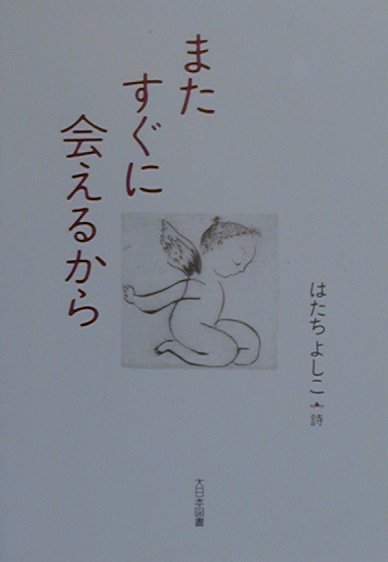 また
すぐに
会えるから
はたち よしこ・詩
大日本図書